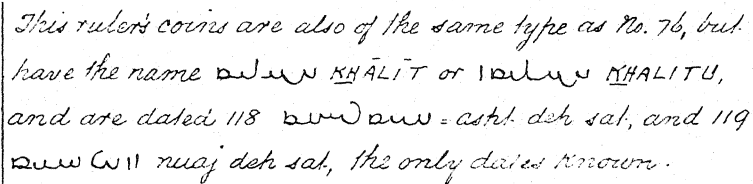 This ruler's coins are also of the same type as No. 76, but
have the name KHĀLĪT or KHALITU,
and are dated 118 = asht deh sat, and 119
nuaj deh sat, the only dates known.